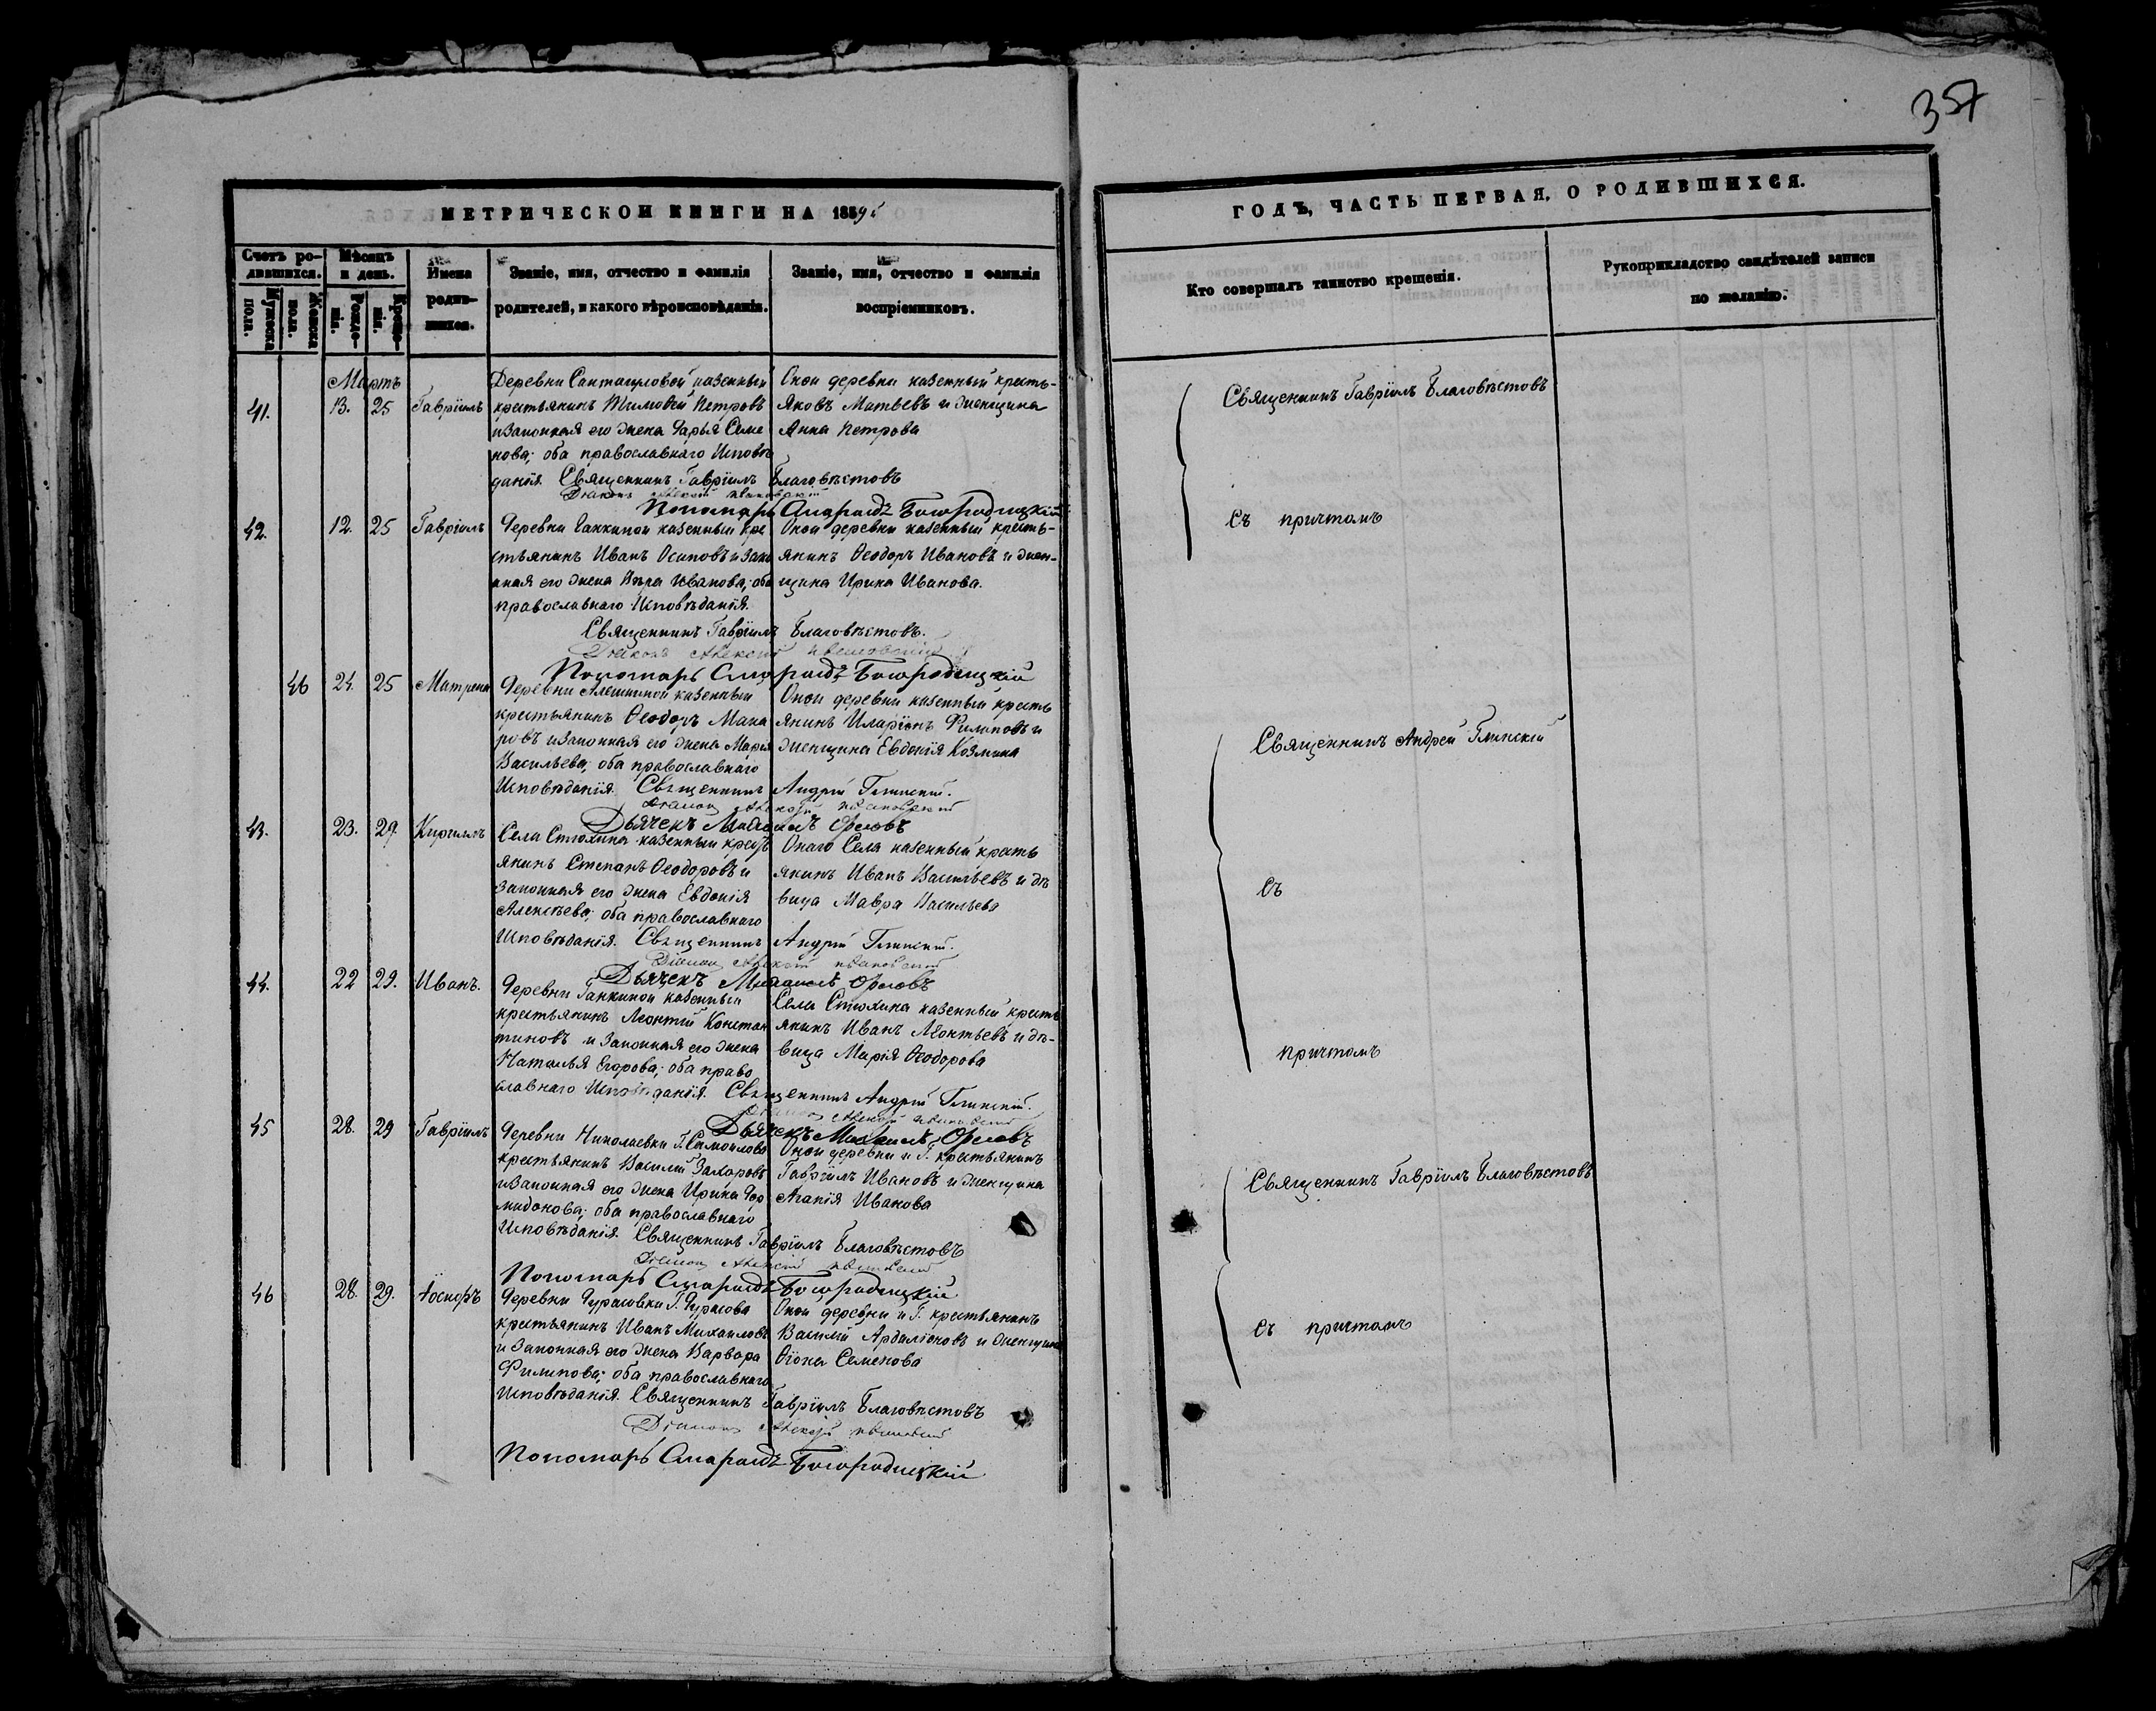 357
МЕТРИЧЕСКОЙ КНИГИ НА 185
ГОДЪ, ЧАСТЬ ПЕРВАЯ. О РОДИВШИХСЯ.
Счетъ ро-
дившихся.
Мужеска
пола.
Женска
пола.
Мѣсяцъ
и день.
Рожде-
нія.
Креще-
нія.
Имена
родив-
шихся.
Званіе, имя, отчество и фамилія
родителей, и какого вѣроисповѣданія.
Званіе, имя, отчество и фамилія
воспріемниковъ.
Кто совершалъ таинство крещенія.
Рукоприкладство свидѣтелей записи
по желанію.
Мартъ
41. 13. 25 Гавріилъ
Деревни казенный
крестьянинъ Тимофей Петровъ
и законная его жена Дарья Семе
нова; оба православнаго Исповѣ
данія.
Оной деревни казенный кресть-
Яковъ Матвѣевъ и женщина
Анна Петрова
Священникъ Гавріилъ Благовѣстовъ
Діаконъ Алексѣй
Пономарь Смарагдъ Богородицкій
42. 12. 25 Гавріилъ
Деревни казенный кре
стьянинъ Иванъ Осиповъ и зако
нная его жена Вѣра Иванова; оба
православнаго Исповѣданія.
Оной деревни казенный кресть-
янинъ Ѳеодоръ Ивановъ и жен-
щина Ирина Иванова.
Священникъ Гавріилъ Благовѣстовъ.
Діаконъ Алексѣй
Пономарь Смарагдъ Богородицкій
46 24. 25 Матрена
Деревни Алешиной казенный
крестьянинъ Ѳеодоръ Мака
ровъ и законная его жена Марія
Васильева; оба православнаго
Исповѣданія.
Оной деревни казенный кресть
янинъ Иларіонъ Филиповъ и
женщина Евдокія Козмина
Священникъ Андрей Глинскій.
Діаконъ Алексѣй
Дьячекъ Михаилъ Орловъ
43. 23. 29. Кириллъ
Села казенный крест
янинъ Степанъ Ѳеодоровъ и
законная его жена Евдокія
Алексѣева; оба православнаго
Исповѣданія.
Онаго Села казенный кресть
янинъ Иванъ Васильевъ и дѣ
вица Мавра Васильева
Священникъ Андрей Глинскій.
Діаконъ Алексѣй
Дьячекъ Михаилъ Орловъ
44. 22 29. Иванъ.
Деревни казенный
крестьянинъ Леонтій Констан
тиновъ и законная его жена
Наталья Егорова; оба право
славнаго Исповѣданія.
Села казенный кресть
янинъ Иванъ Леонтьевъ и дѣ-
вица Марія Ѳеодорова
Священникъ Андрей Глинскій.
Діаконъ Алексѣй
Дьячекъ Михаилъ Орловъ
45 28. 29 Гавріилъ
Деревни Николаевки Г. Самойлова
крестьянинъ Василій Захаровъ
и законная его жена Ирина Спи
ридонова; оба православнаго
Исповѣданія.
Оной деревни и Г. крестьянинъ
Гавріилъ Ивановъ и женщина
Агапія Иванова
Священникъ Гавріилъ Благовѣстовъ
Діаконъ Алексѣй
Пономарь Смарагдъ Богородицкій
46 28. 29.
Деревни Дурасовки Г. Дурасова
крестьянинъ Иванъ Михайловъ
и законная его жена Варвара
Филипова; оба православнаго
Исповѣданія.
Оной деревни и Г. крестьянинъ
Василій Ардаліоновъ и женщина
Семенова
Священникъ Гавріилъ Благовѣстовъ
Діаконъ Алексѣй
Пономарь Смарагдъ Богородицкій
Священникъ Гавріилъ Благовѣстовъ
Съ причтомъ
Священникъ Андрей Глинскій
Съ
причтомъ
Священникъ Гавріилъ Благовѣстовъ
Съ причтомъ